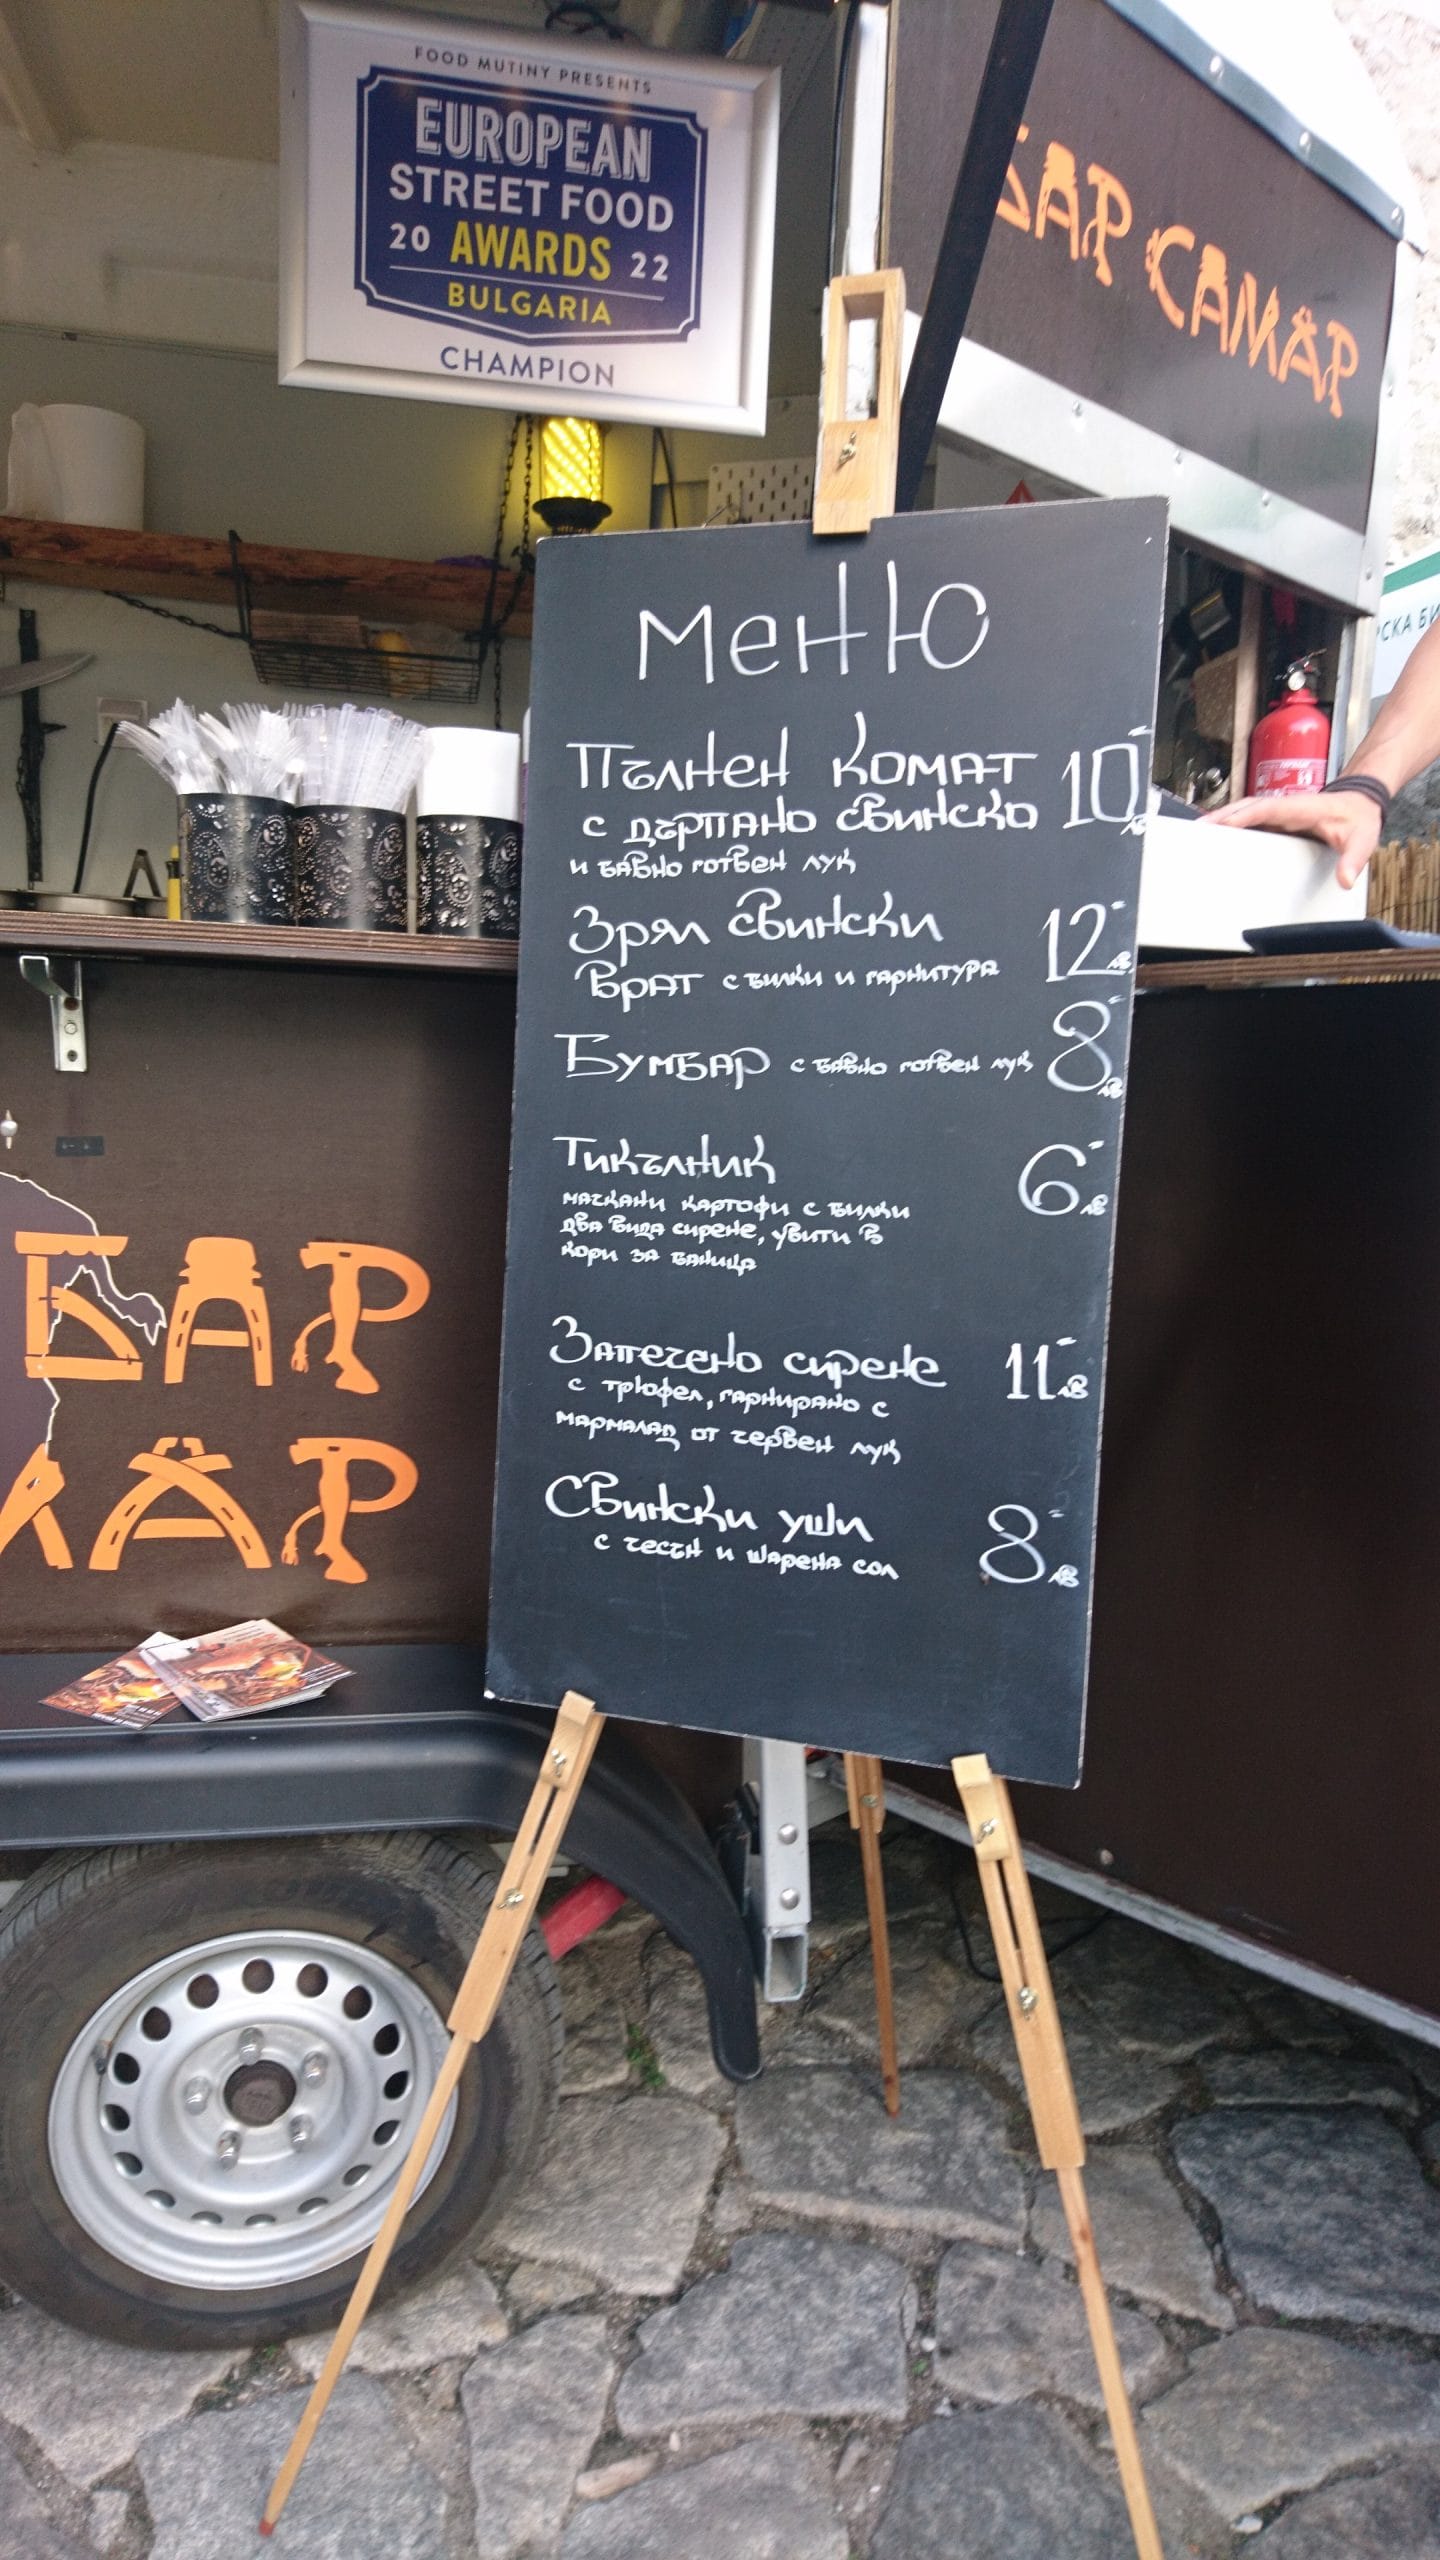 FOOD MUTINY PRESENTS
EUROPEAN
STREET FOOD
20 AWARDS 22
BULGARIA
CHAMPION
БАР САМАР
Меню
Пълнен комат 10лв
с дърпано свинско
и бавно готвен лук
Зрял свински 12лв
врат с билки и гарнитура
Бумбар с бавно готвен лук 8лв
Тикълник 6лв
мачкани картофи с билки
два вида сирене, увити в
кори за баница
Запечено сирене 11лв
с трюфел, гарнирано с
мармалад от червен лук
Свински уши 8лв
с чесън и шарена сол
БАР
МАР